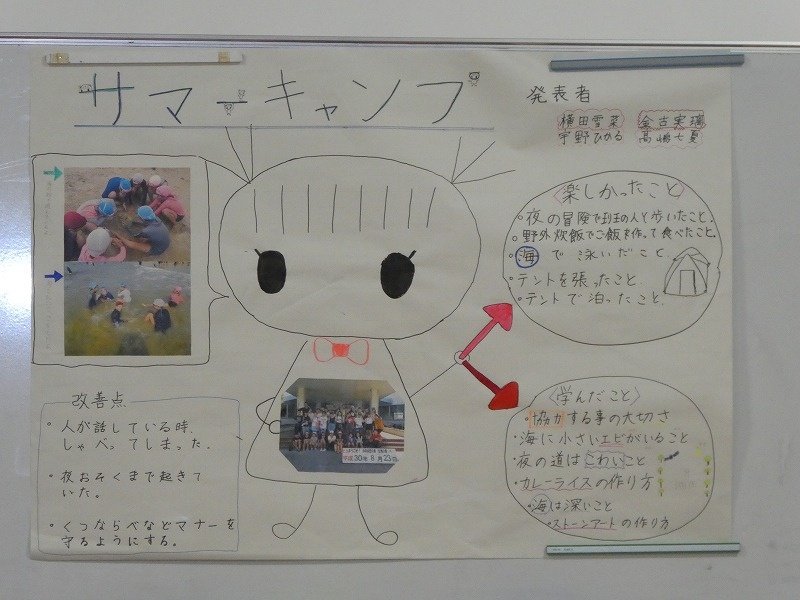 サマーキャンプ
発表者
横田雪菜 金古実璃
宇野ひかる 高嶋七夏
〈楽しかったこと〉
・夜の冒険で班の人と歩いたこと。
・野外炊飯でご飯を作って食べたこと。
・海で泳いだこと。
・テントを張ったこと。
・テントで泊ったこと。
〈学んだこと〉
・協力する事の大切さ
・海に小さいエビがいること
・夜の道はこわいこと
・カレーライスの作り方
・海は深いこと
・ストーンアートの作り方
改善点
・人が話している時、
しゃべってしまった。
・夜おそくまで起きて
いた。
・くつならべなどマナーを
守るようにする。
平成30年8月23日